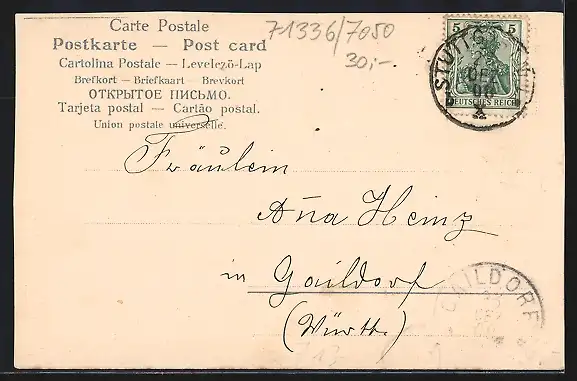 Carte Postale
Postkarte — Post card
Cartolina Postale — Levelező-Lap
Brefkort — Briefkaart — Brevkort
ОТКРЫТОЕ ПИСЬМО.
Tarjeta postal — Cartão postal.
Union postale universelle.
71336/7050
30,-
5 5
DEUTSCHES REICH
STUTTG
DEZ
Fräulein
Anna Heinz
in Gaildorf
(Württ.)
GAILDORF